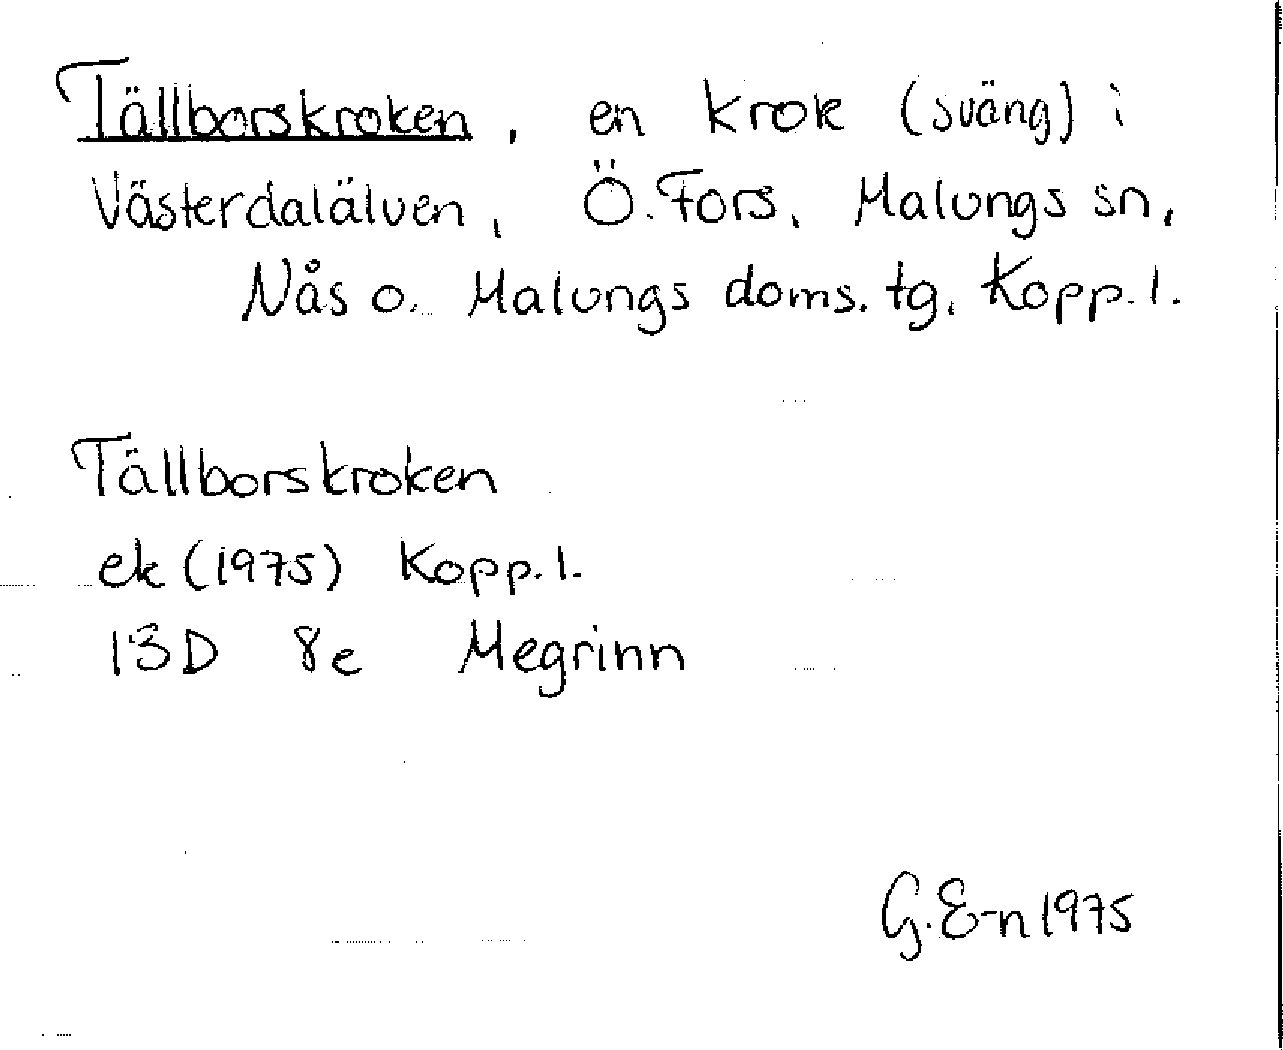 Tällborskroken, en krok (sväng) i
Västerdalälven, Ö. Fors, Malungs sn,
Nås o. Malungs doms. tg. Kopp. l.
Tällborskroken
ek (1975) Kopp. l.
13D 8e Megrinn
G. E-n 1975